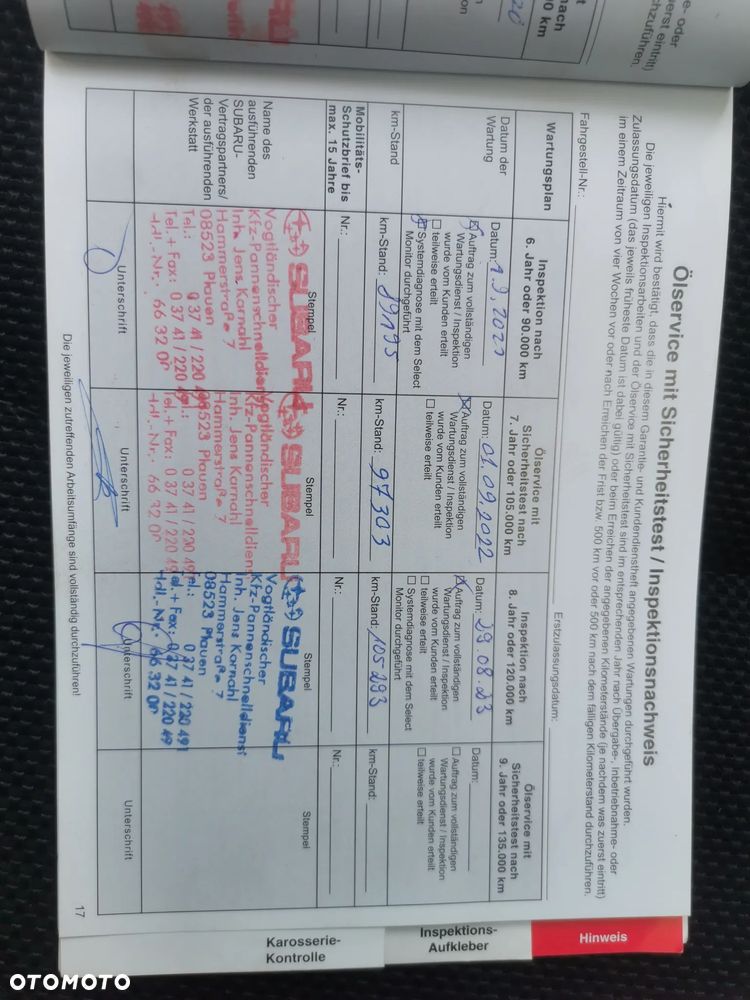 Ölservice mit Sicherheitstest / Inspektionsnachweis
Hiermit wird bestätigt, dass die in diesem Garantie- und Kundendienstheft angegebenen Wartungen durchgeführt wurden.
Die jeweiligen Inspektionsarbeiten und der Ölservice mit Sicherheitstest sind im entsprechenden Jahr nach Übergabe-, Inbetriebnahme- oder
Zulassungsdatum (das jeweils früheste Datum ist dabei gültig) oder beim Erreichen der angegebenen Kilometerstände (je nachdem was zuerst eintritt)
im einem Zeitraum von vier Wochen vor oder nach Erreichen der Frist bzw. 500 km vor oder 500 km nach dem fälligen Kilometerstand durchzuführen.
Fahrgestell-Nr.:
Erstzulassungsdatum:
Wartungsplan
Inspektion nach
6. Jahr oder 90.000 km
Ölservice mit
Sicherheitstest nach
7. Jahr oder 105.000 km
Inspektion nach
8. Jahr oder 120.000 km
Ölservice mit
Sicherheitstest nach
9. Jahr oder 135.000 km
Datum der
Wartung
Datum: 1.9.2021
Auftrag zum vollständigen
Wartungsdienst / Inspektion
wurde vom Kunden erteilt
teilweise erteilt
Systemdiagnose mit dem Select
Monitor durchgeführt
Datum: 01.09.2022
Auftrag zum vollständigen
Wartungsdienst / Inspektion
wurde vom Kunden erteilt
teilweise erteilt
Datum: 29.08.23
Auftrag zum vollständigen
Wartungsdienst / Inspektion
wurde vom Kunden erteilt
teilweise erteilt
Systemdiagnose mit dem Select
Monitor durchgeführt
Datum:
Auftrag zum vollständigen
Wartungsdienst / Inspektion
wurde vom Kunden erteilt
teilweise erteilt
km-Stand
km-Stand: 89195
km-Stand: 97303
km-Stand: 105293
km-Stand:
Mobilitäts-
Schutzbrief bis
max. 15 Jahre
Nr.:
Nr.:
Nr.:
Nr.:
Name des
ausführenden
SUBARU-
Vertragspartners/
der ausführenden
Werkstatt
Stempel
SUBARU
Vogtländischer
Kfz-Pannenschnelldienst
Inh. Jens Karnahl
Hammerstraße 7
08523 Plauen
Tel.: 0 37 41 / 220 49
Tel.+ Fax: 0 37 41 / 220 49
Hdl.-Nr.: 66 32 00
Unterschrift
Stempel
SUBARU
Vogtländischer
Kfz-Pannenschnelldienst
Inh. Jens Karnahl
Hammerstraße 7
08523 Plauen
Tel.: 0 37 41 / 220 49
Tel.+ Fax: 0 37 41 / 220 49
Hdl.-Nr.: 66 32 00
Unterschrift
Stempel
SUBARU
Vogtländischer
Kfz-Pannenschnelldienst
Inh. Jens Karnahl
Hammerstraße 7
08523 Plauen
Tel.: 0 37 41 / 220 49
Tel.+ Fax: 0 37 41 / 220 49
Hdl.-Nr.: 66 32 00
Unterschrift
Stempel
Unterschrift
Die jeweiligen zutreffenden Arbeitsumfänge sind vollständig durchzuführen!
17
Karosserie-
Kontrolle
Inspektions-
Aufkleber
Hinweis
OTOMOTO